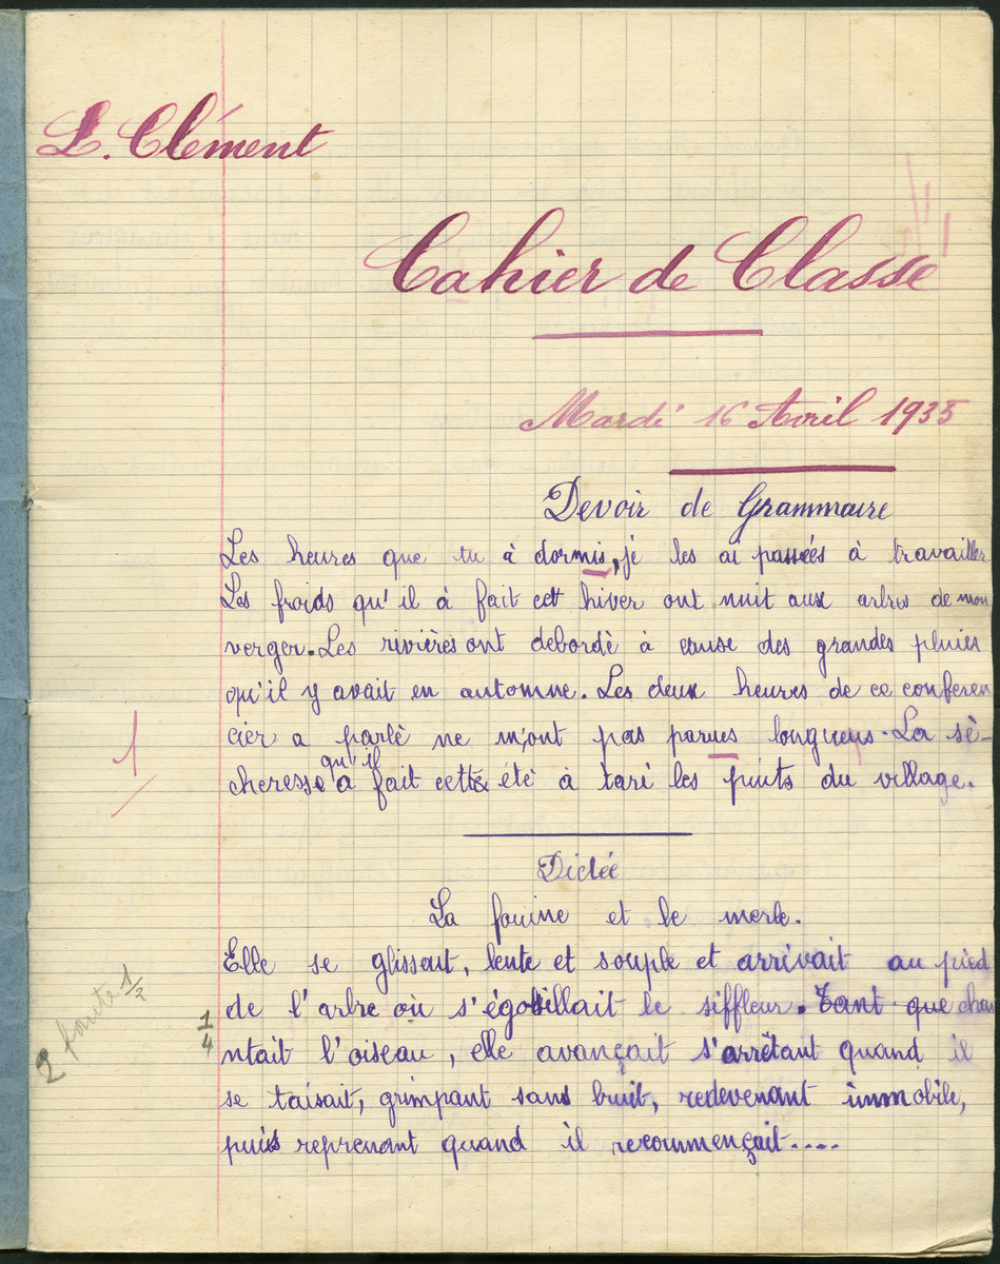 L. Clément
Cahier de Classe
Mardi 16 Avril 1935
Devoir de Grammaire
Les heures que tu à dormis, je les ai passées à travailler
Les froids qu'il à fait cett hiver ont nuit aux arbres de mon
verger. Les rivières ont debordè à cause des grandes pluies
qu'il y avait en automne. Les deux heures de ce conferen
cier a parlè ne m'ont pas parues longueus. La sè-
qu'il
cheresse a fait cette étè à tari les puits du village.
1
Dictée
La fouine et le merle.
Elle se glissait, lente et souple et arrivait au pied
de l'arbre où s'égosillait le siffleur. Tant que chan
ntait l'oiseau, elle avançait s'arrêtant quand il
se taisait, grimpant sans bruit, redevenant immobile,
puis reprenant quand il recommençait.....
2 faute 1/2
1/4